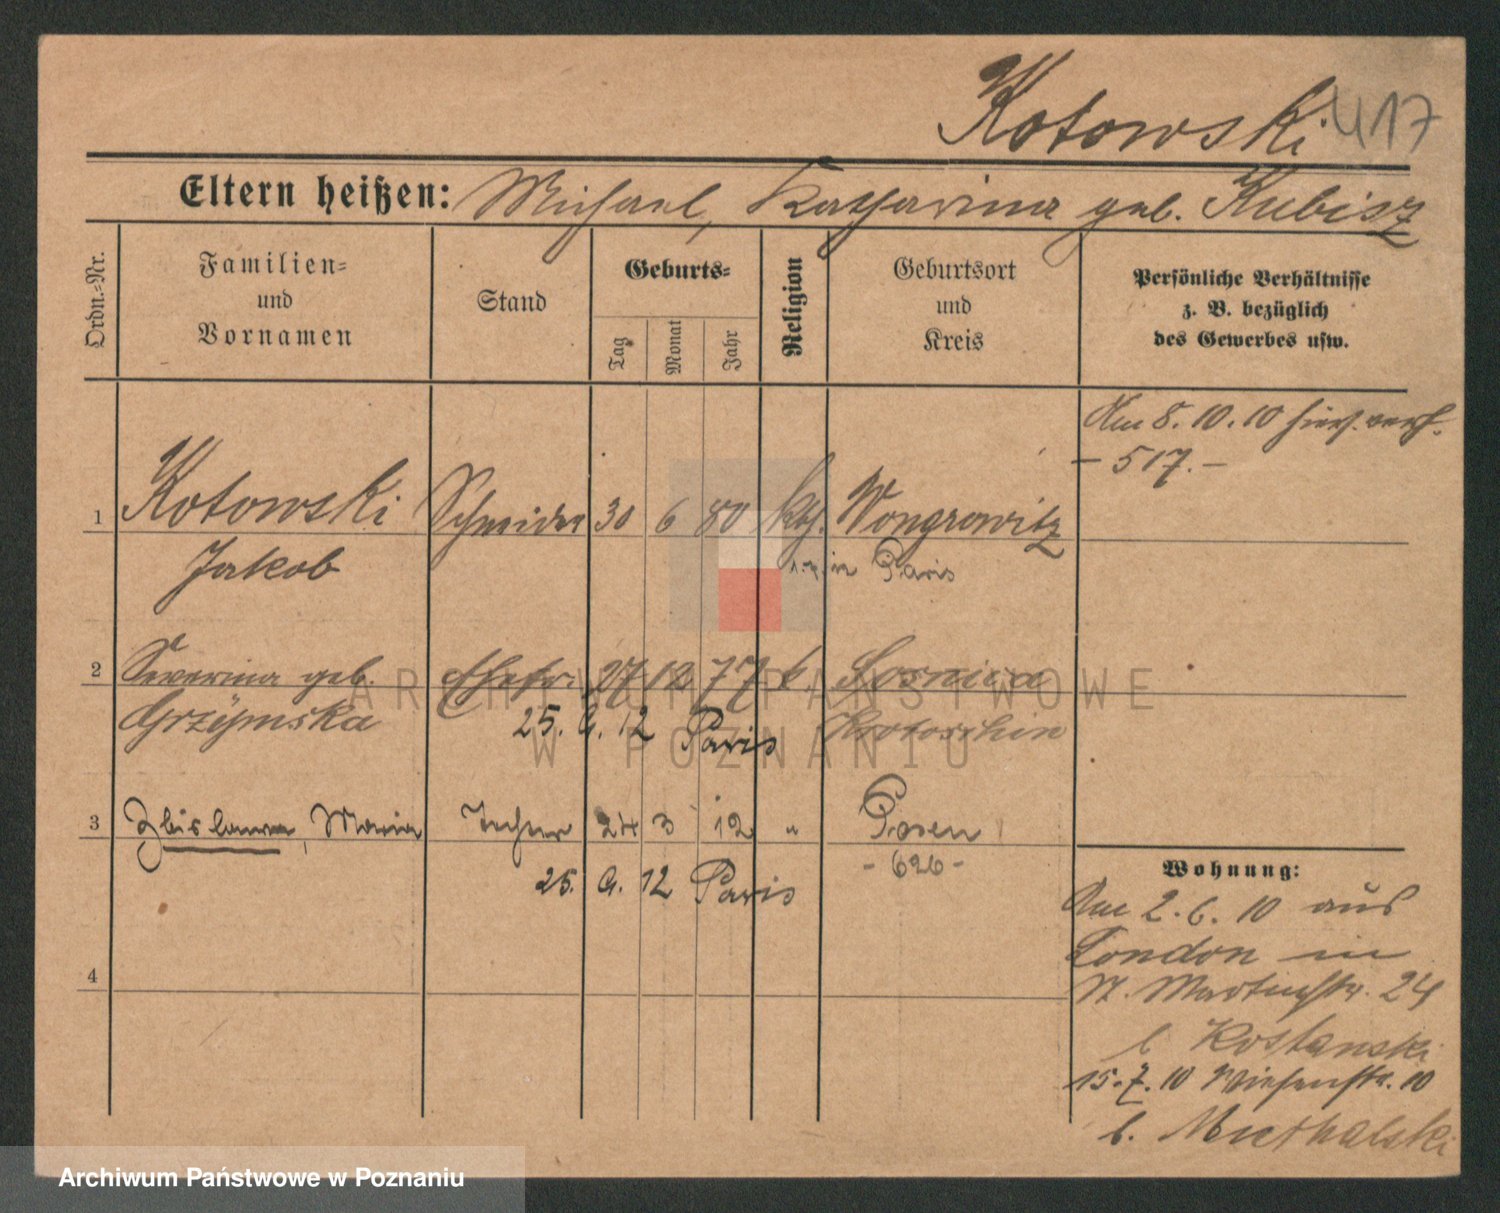 Kotowski 417
Eltern heißen: Michael, Katharina geb. Kubisz
Ordn.-Nr.
Familien-
und
Vornamen
Stand
Geburts-
Tag
Monat
Jahr
Religion
Geburtsort
und
Kreis
Persönliche Verhältnisse
z. B. bezüglich
des Gewerbes usw.
Am 8.10.10 hier verh.
- 517. -
1 Kotowski Schneider 30 6 80 kth. Wongrowitz
Jakob in Paris
2 Severina geb. Ehefr. 27 12 77 k. Sosnica
Grzymska 25. 9. 12 Paris Krotoschin
3 Maria Tochter 24 3 12 " Posen
- 626 -
25. 9. 12 Paris
4
Wohnung:
Am 2.6.10 aus
London in
St. Martinstr. 24
b Kostanski
15.7.10 Wiesenstr. 10
b.
ARCHIWUM PAŃSTWOWE
W POZNANIU
Archiwum Państwowe w Poznaniu